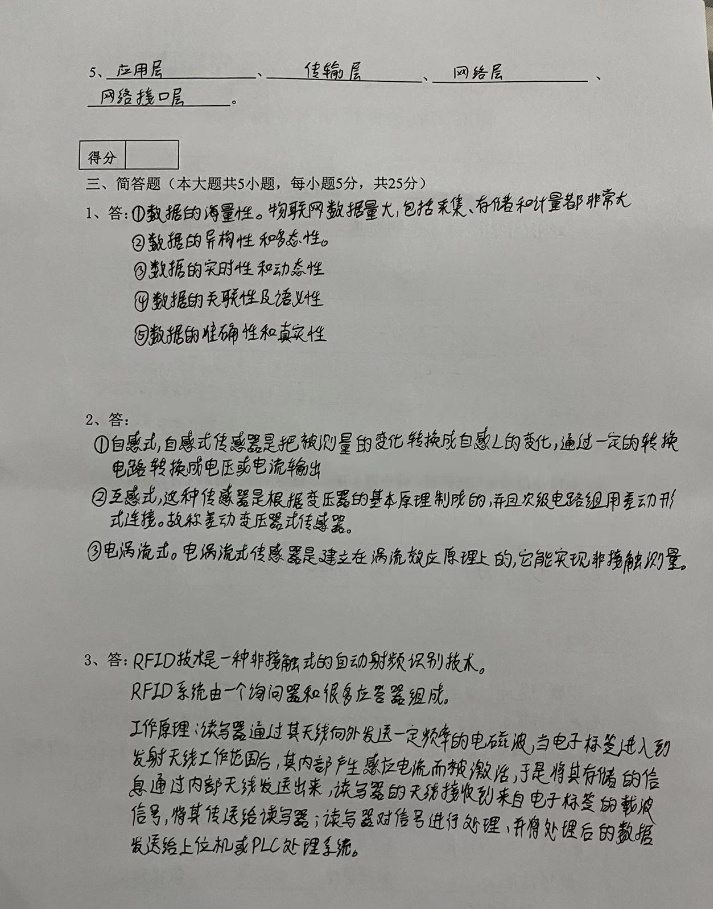 5、应用层、传输层、网络层、
网络接口层。
得分
三、简答题（本大题共5小题，每小题5分，共25分）
1、答:①数据的海量性。物联网数据量大,包括采集、存储和计量都非常大
②数据的异构性和多态性。
③数据的实时性和动态性
④数据的关联性及语义性
⑤数据的准确性和真实性
2、答:
①自感式,自感式传感器是把被测量的变化转换成自感L的变化,通过一定的转换
电路转换成电压或电流输出
②互感式,这种传感器是根据变压器的基本原理制成的,并且次级电路组用差动形
式连接。故称差动变压器式传感器。
③电涡流式。电涡流式传感器是建立在涡流效应原理上的,它能实现非接触测量。
3、答:RFID技术是一种非接触式的自动射频识别技术。
RFID系统由一个询问器和很多应答器组成。
工作原理:读写器通过其天线向外发送一定频率的电磁波,当电子标签进入到
发射天线工作范围后,其内部产生感应电流而被激活,于是将其存储的信
息通过内部天线发送出来,读写器的天线接收到来自电子标签的载波
信号,将其传送给读写器;读写器对信号进行处理,并将处理后的数据
发送给上位机或PLC处理系统。